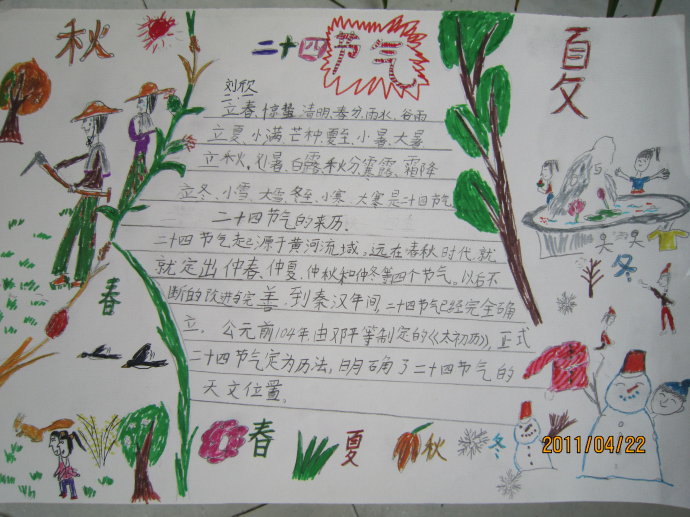 秋
二十四节气
夏
刘欣
立春、惊蛰、清明、春分、雨水、谷雨
立夏、小满、芒种、夏至、小暑、大暑
立秋、处暑、白露、秋分、寒露、霜降
立冬、小雪、大雪、冬至、小寒、大寒是二十四节气。
二十四节气的来历。
二十四节气起源于黄河流域，远在春秋时代，就
就定出仲春、仲夏、仲秋和仲冬等四个节气。以后不
断的改进与完善，到秦汉年间，二十四节气已经完全确
立。公元前104年，由邓平等制定的《太初历》，正式
二十四节气定为历法，明确了二十四节气的
天文位置。
春
冬
春
夏
秋
冬
2011/04/22